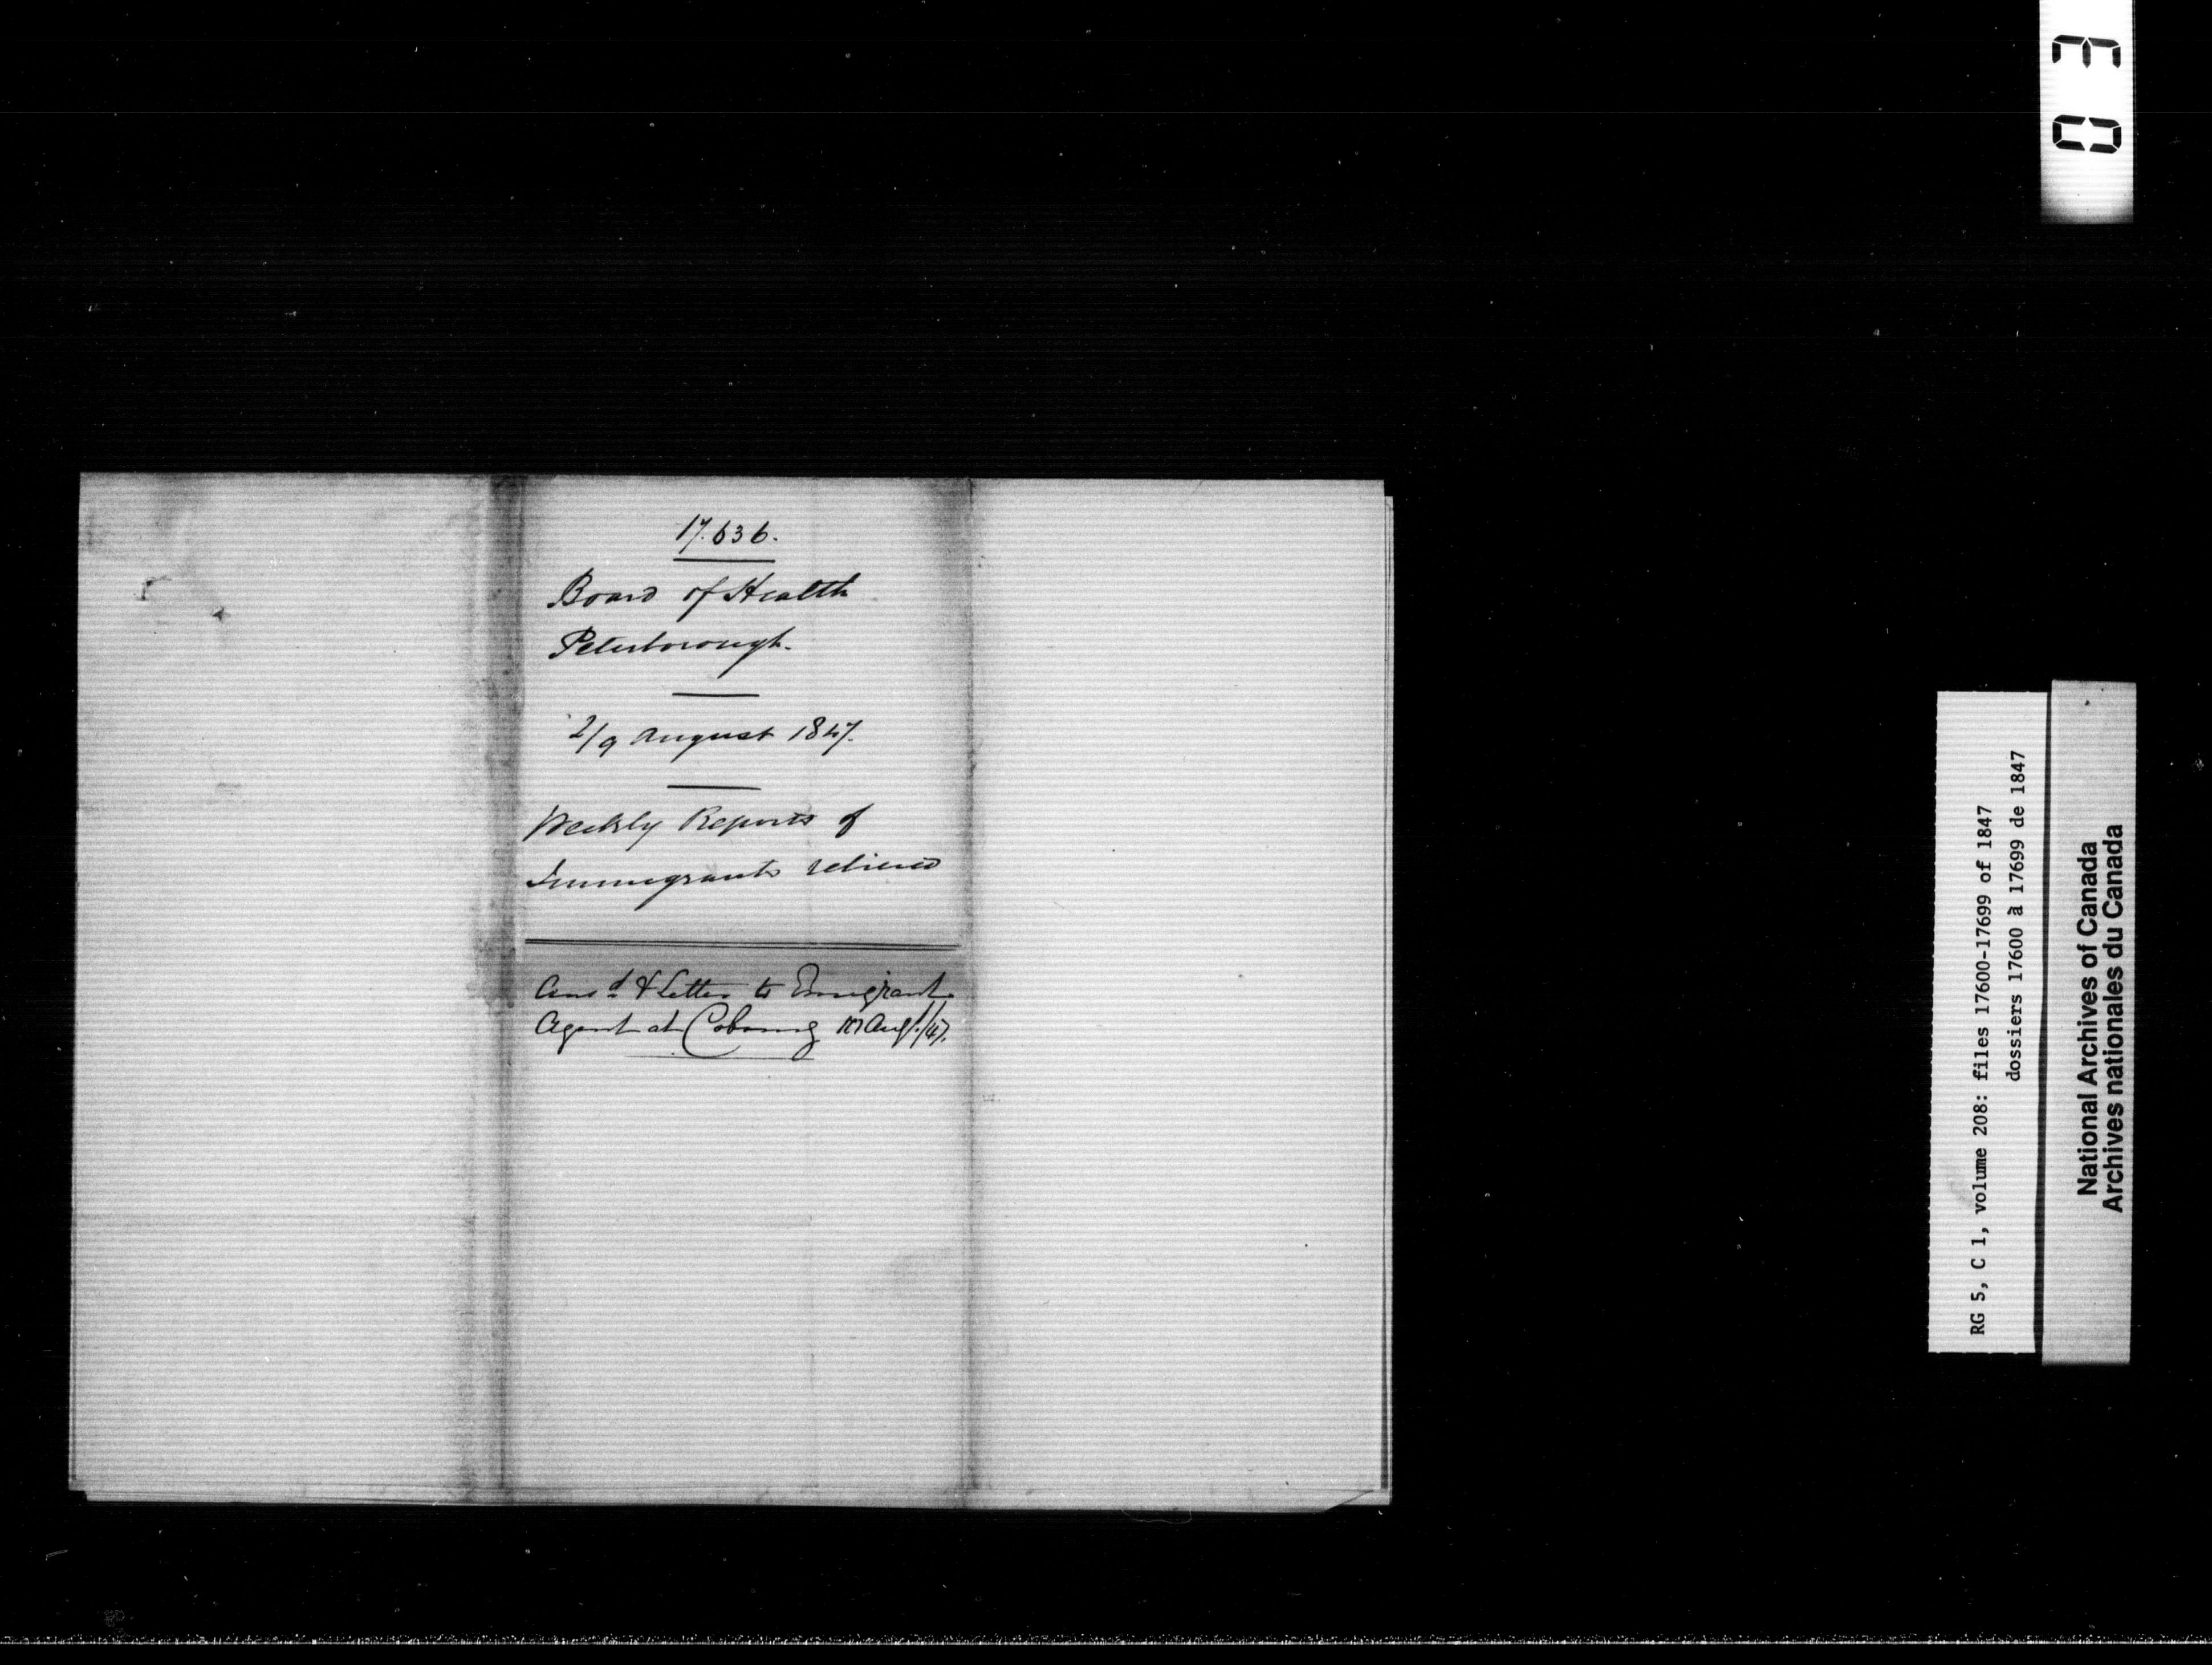 17.636.
Board of Health
Peterborough.
2/9 August 1847.
Weekly Reports of
Immigrants relieved
Ansd & Letter to Emigrant
Agent at Cobourg 10 Augt./47.
03
RG 5, C 1, volume 208: files 17600-17699 of 1847
dossiers 17600 à 17699 de 1847
National Archives of Canada
Archives nationales du Canada